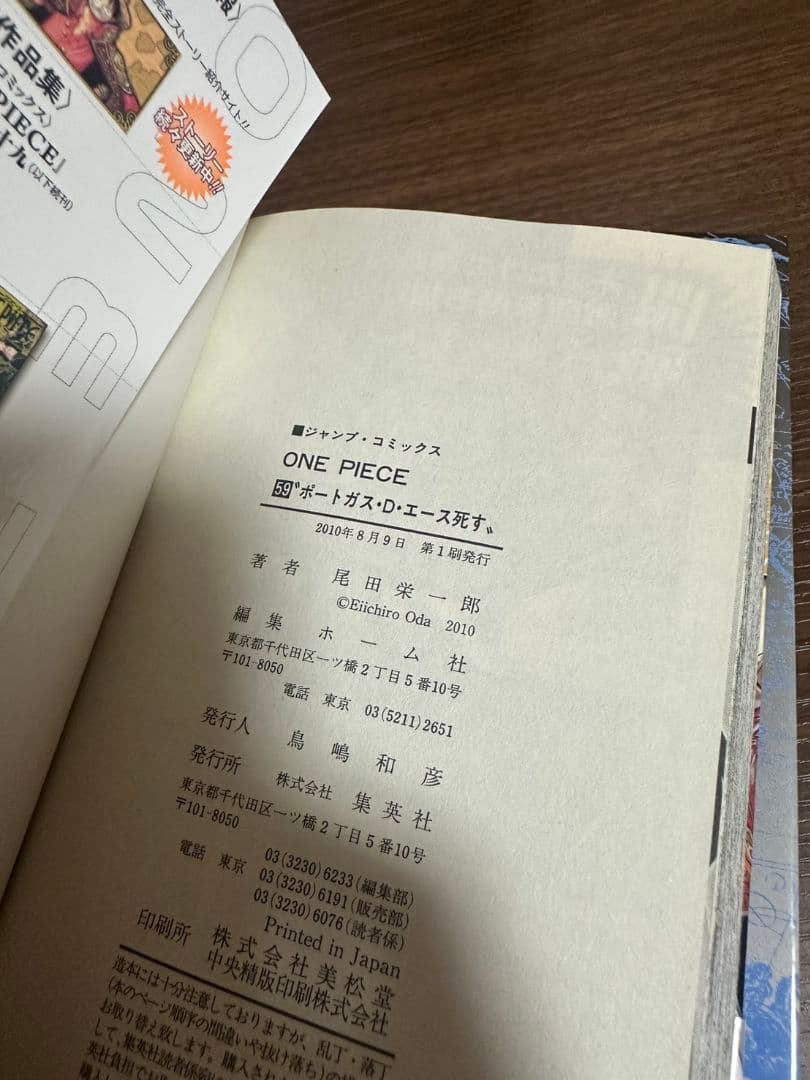 完全ストーリー紹介サイト!!
作品集〉
コミックス〉
PIECE』
十九(以下続刊)
ストーリー
続々更新中!!
■ジャンプ・コミックス
ONE PIECE
59〝ポートガス・D・エース死す〟
2010年8月9日 第1刷発行
著者 尾田栄一郎
©Eiichiro Oda 2010
編集 ホーム社
東京都千代田区一ツ橋2丁目5番10号
〒101-8050
電話 東京 03(5211)2651
発行人 鳥嶋和彦
発行所 株式会社 集英社
東京都千代田区一ツ橋2丁目5番10号
〒101-8050
電話 東京 03(3230)6233(編集部)
03(3230)6191(販売部)
03(3230)6076(読者係)
Printed in Japan
印刷所 株式会社美松堂
中央精版印刷株式会社
造本には十分注意しておりますが、乱丁・落丁
(本のページ順序の間違いや抜け落ち)の
お取り替え致します。購入され
して、集英社読者係宛
英社負担でお
購入し